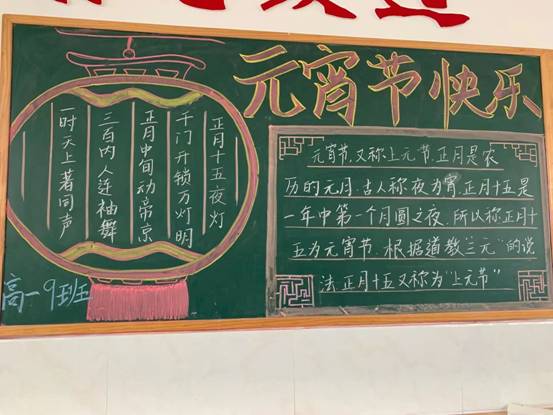 元宵节快乐
正月十五夜灯
千门开锁万灯明
正月中旬动帝京
三百内人连袖舞
一时天上著同声
元宵节,又称上元节,正月是农
历的元月,古人称夜为宵,正月十五是
一年中第一个月圆之夜,所以称正月十
五为元宵节.根据道教“三元”的说
法,正月十五又称为“上元节”
高一9班